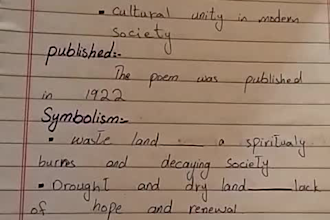 • cultural unity in modern
society
published:-
The poem was published
in 1922
Symbolism:-
• waste land ___ a spiritualy
burres and decaying society
• Drought and dry land ___ lack
of hope and renewal